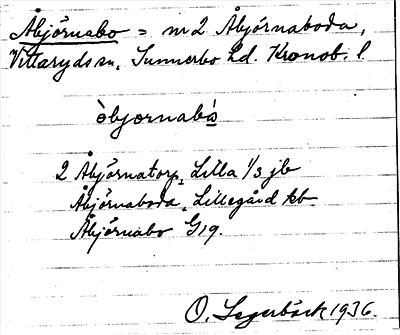 Åbjörnabo = nr 2 Åbjörnaboda,
Vittaryds sn, Sunnerbo hd. Kronob. l.
òbjœrnabó̲
2 Åbjörnatorp, Lilla 1/3 jb
Åbjörnaboda, Lillegård kb.
Åbjörnabo G19.
O. Segerbäck 1936.